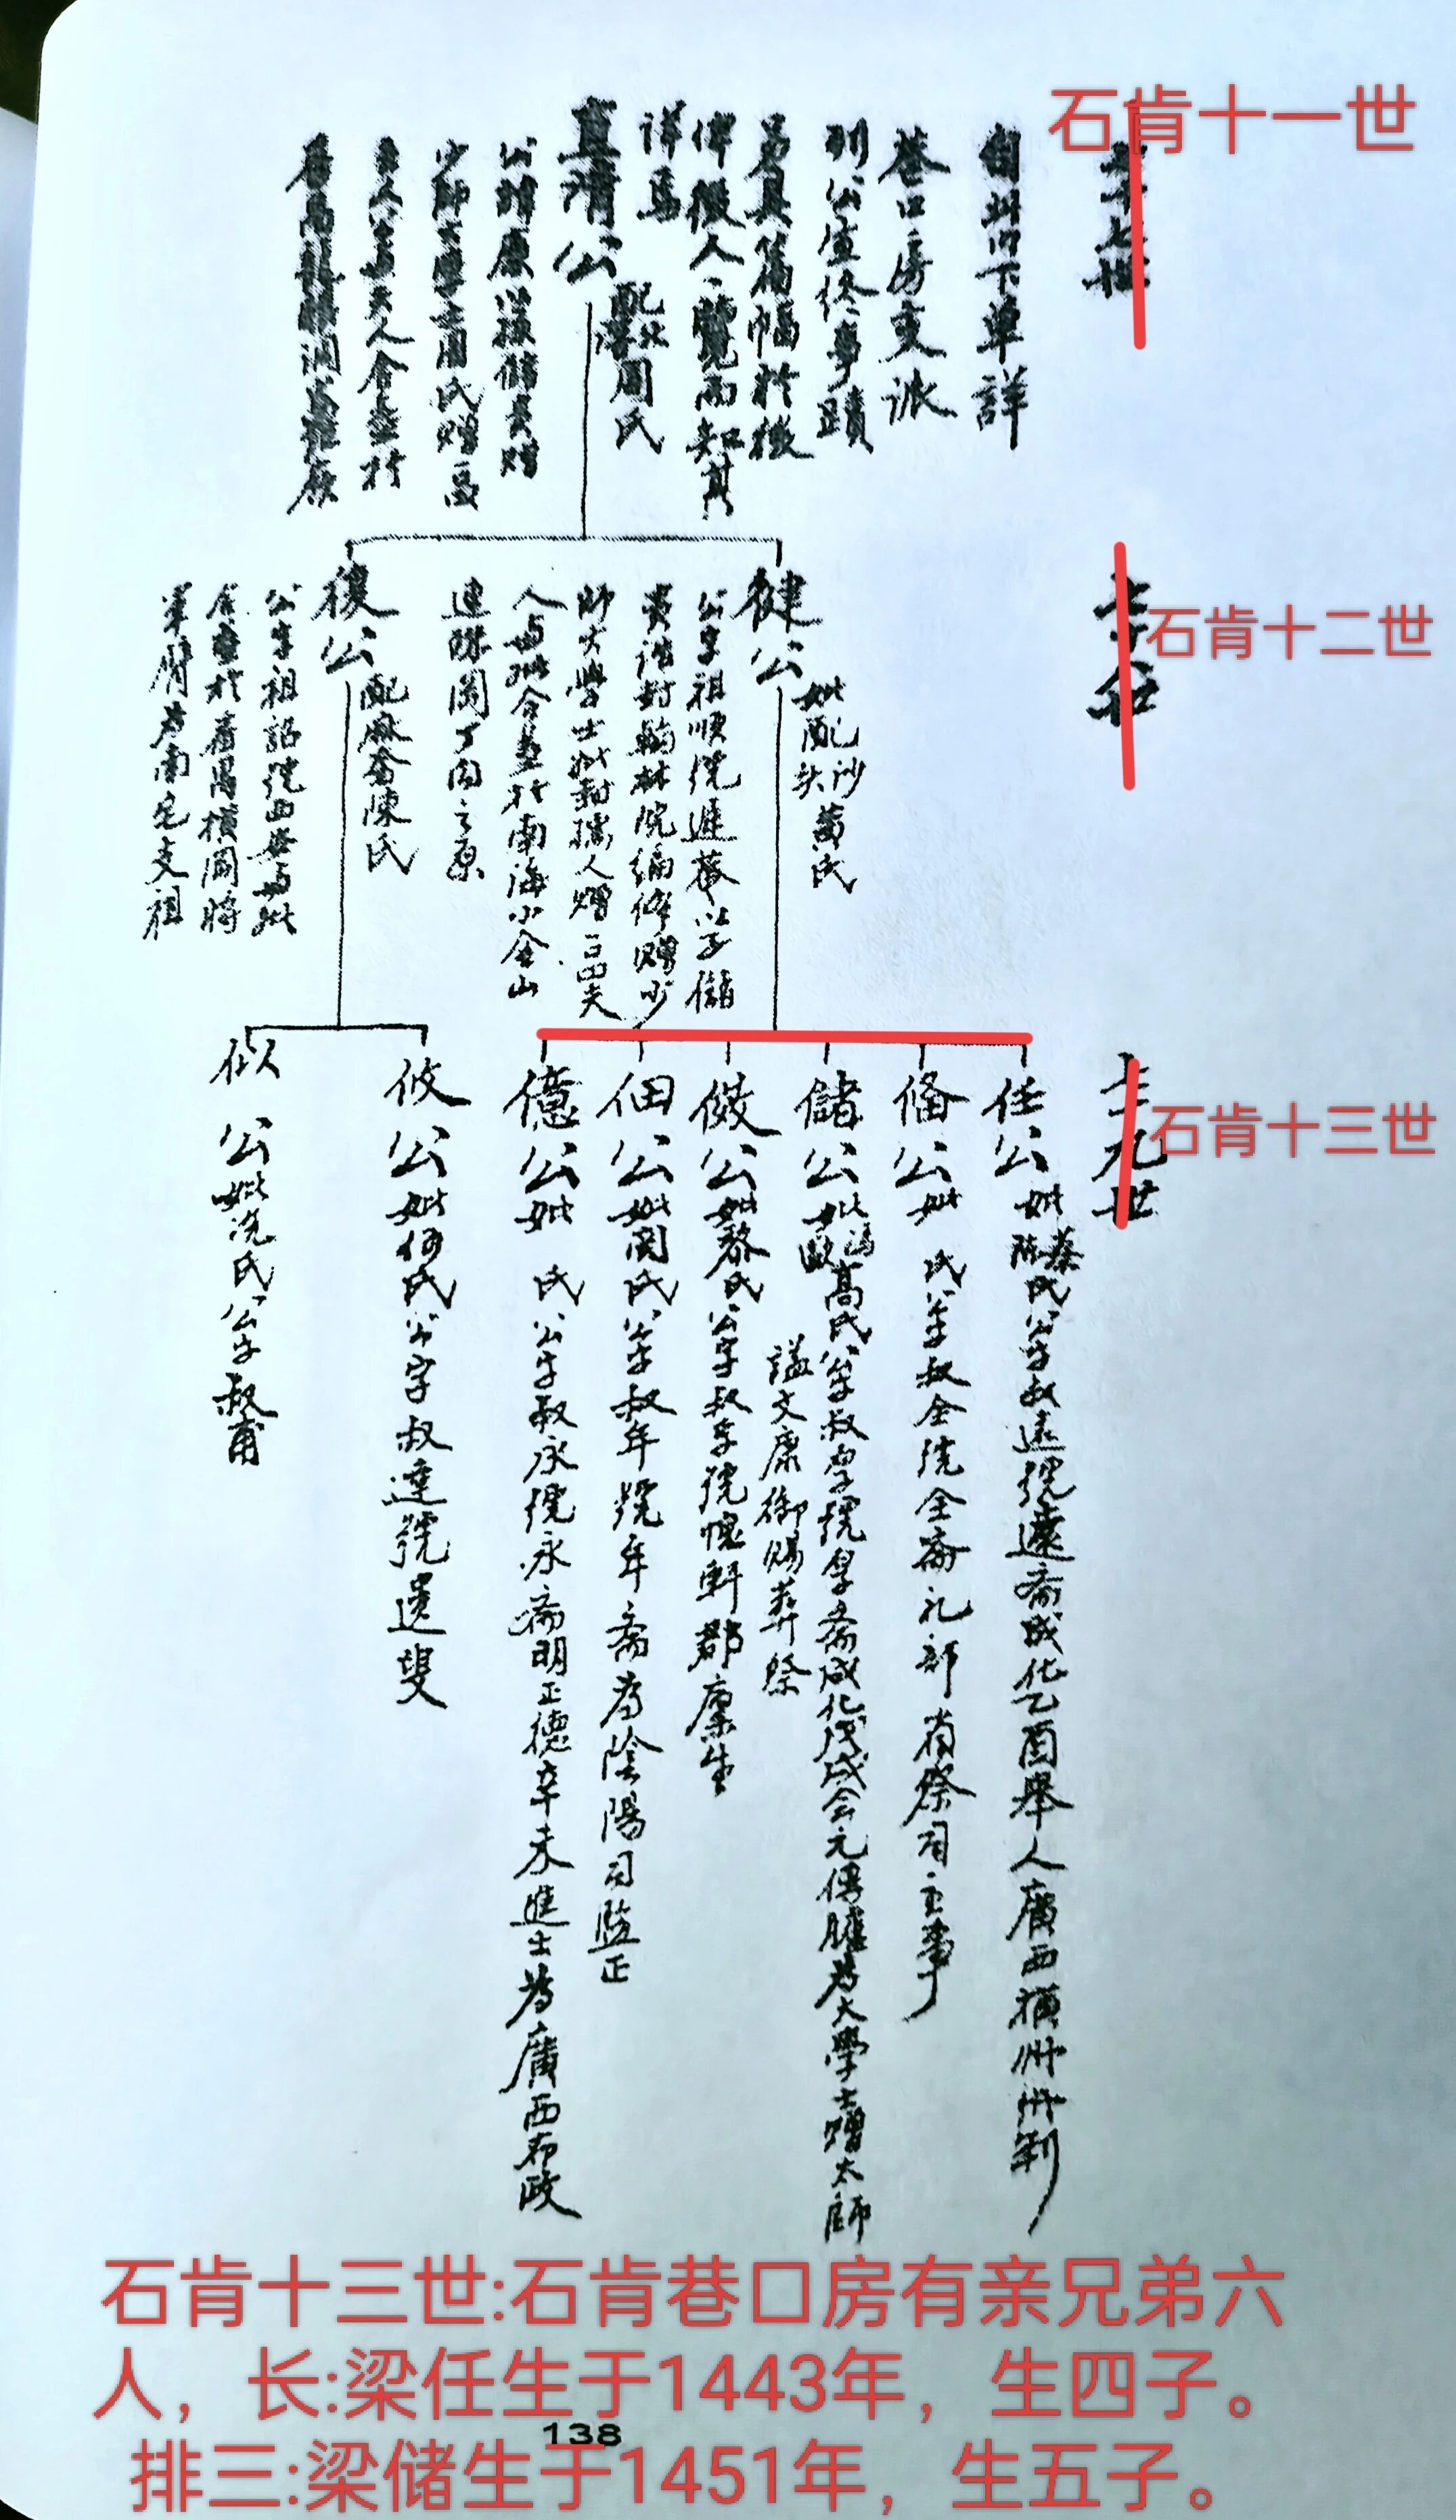 石肯十一世
自此以下單詳
巷口房支派
列公宣終事蹟
另具篇幅於後
俾後人一覽而知其
詳焉
直清公
配妣周氏
公諱康以孫儲貴贈
少師大學士周氏贈一品
夫人公與夫人合塟於
石肯十二世
健公
妣配沙頭黃氏
公字祖順號進菴以子儲
貴誥封翰林院編修贈少
師大學士妣封孺人贈一品夫
人與妣合塟於南海小金山
連珠岡丁向之原
復公
配麻奢陳氏
公字祖詔號西菴與妣
合塟於番禺橫岡將
軍臂為南宅支祖
石肯十三世
十九世
任公妣蔡陳氏公字叔遠號遠齋成化乙酉舉人廣西橫州州判
俻公妣 氏公字叔全號全齋礼部省祭司主事
儲公妣馮歐高氏公字叔厚號厚齋成化戊戌会元傳臚為大學士贈太師
諡文康御賜葬祭
儆公妣黎氏公字叔孚號愧軒郡廩生
佃公妣関氏公字叔年號年齋為陰陽司監正
億公妣 氏公字叔永號永齋明正德辛未進士為廣西布政
攸公妣何氏公字叔達號遺叟
似公妣冼氏公字叔甫
石肯十三世:石肯巷口房有亲兄弟六
人，长:梁任生于1443年，生四子。
138
排三:梁储生于1451年，生五子。